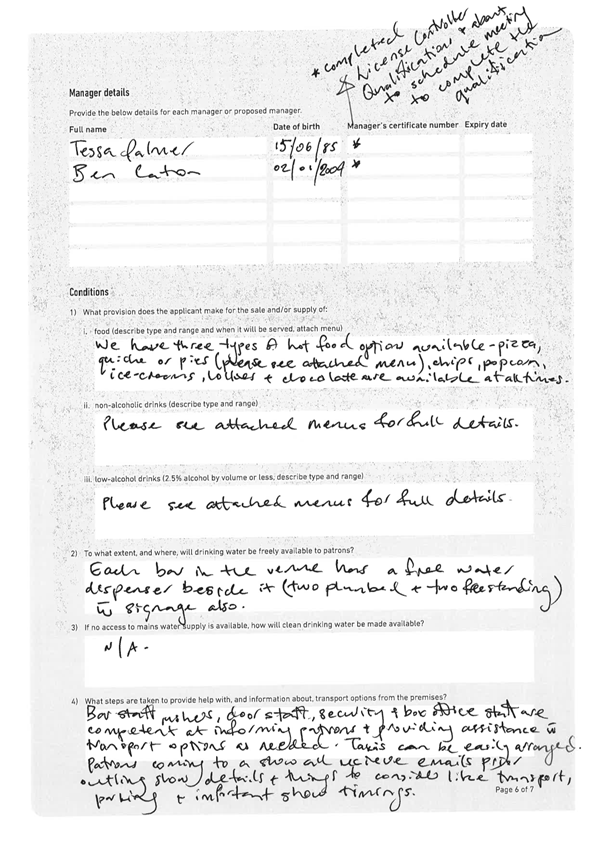 * completed
License Controller
Qualifications & about
to schedule meeting
to complete the
qualification
Manager details
Provide the below details for each manager or proposed manager.
Full name Date of birth Manager's certificate number Expiry date
Tessa Palmer 15/06/85 *
Ben Caton 02/01/2004 *
Conditions
1) What provision does the applicant make for the sale and/or supply of:
i. food (describe type and range and when it will be served, attach menu)
We have three types of hot food option available - pizza,
quiche or pies (please see attached menu), chips, popcorn,
ice-creams, lollies + chocolate are available at all times.
ii. non-alcoholic drinks (describe type and range)
Please see attached menus for full details.
iii. low-alcohol drinks (2.5% alcohol by volume or less, describe type and range)
Please see attached menus for full details.
2) To what extent, and where, will drinking water be freely available to patrons?
Each bar in the venue has a free water
dispenser beside it (two plumbed + two freestanding)
w signage also.
3) If no access to mains water supply is available, how will clean drinking water be made available?
N/A.
4) What steps are taken to provide help with, and information about, transport options from the premises?
Bar staff, ushers, door staff, security + box office staff are
competent at informing patrons + providing assistance w
transport options as needed. Taxis can be easily arranged.
Patrons coming to a show all recieve emails prior
outling show details + things to consider like transport,
parking + important show timings.
Page 6 of 7